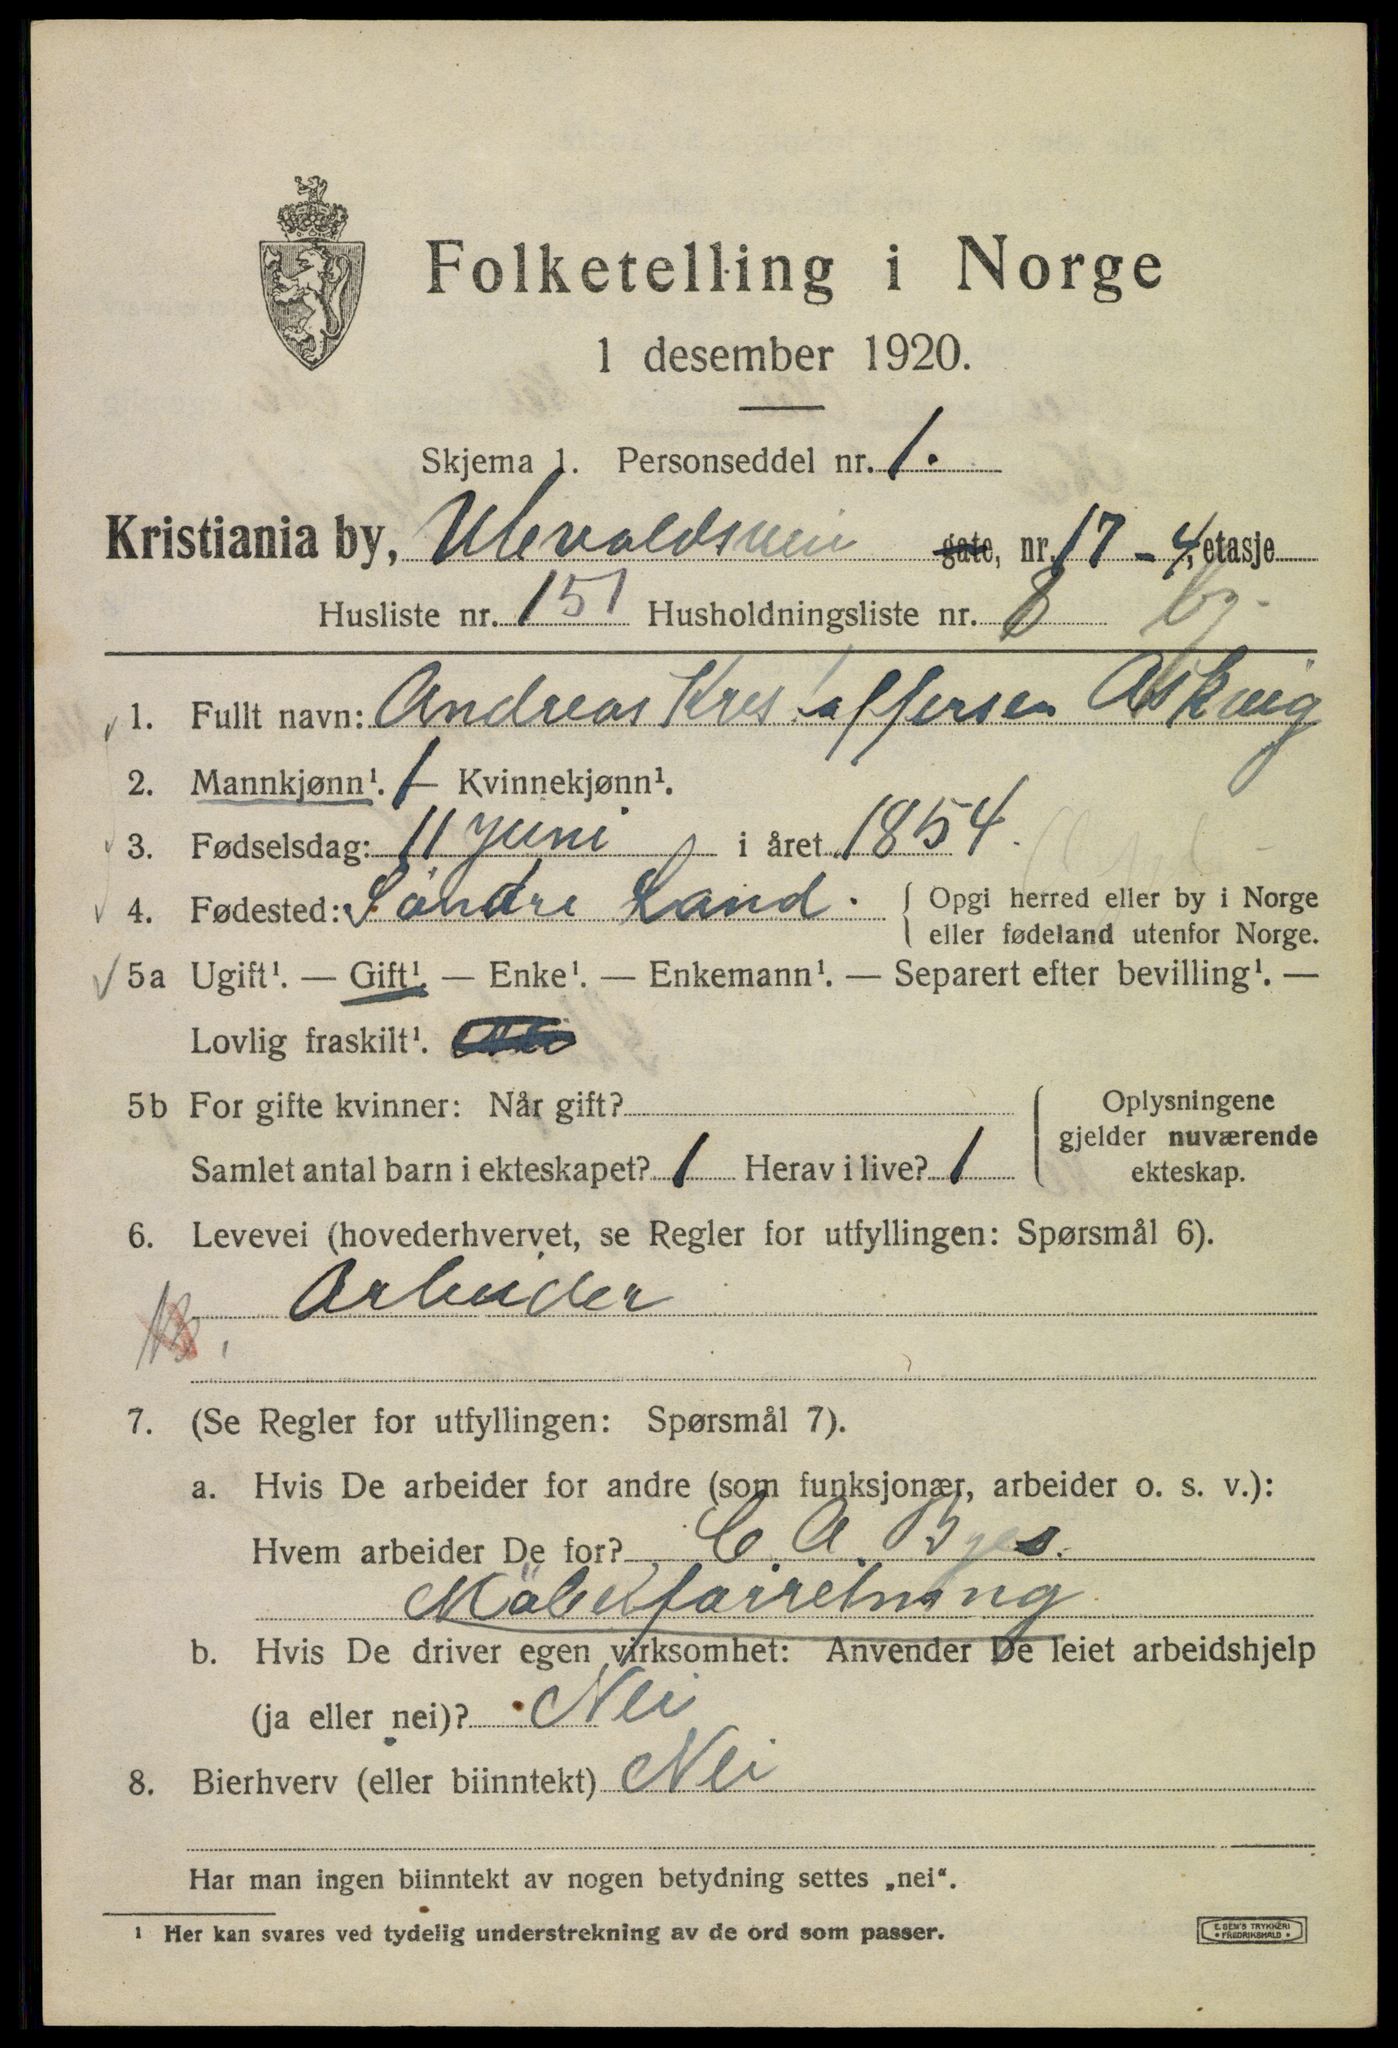 Folketelling i Norge
1 desember 1920.
Skjema 1. Personseddel nr. 1.
Kristiania by, Ulevoldsveien gate, nr. 17 - 4, etasje
Husliste nr. 151 Husholdningsliste nr. 8
1. Fullt navn: Andreas Krestoffersen Askvig
2. Mannkjønn¹. 1 — Kvinnekjønn¹.
3. Fødselsdag: 11 Juni i året 1854.
4. Fødested: Söndre Land. Opgi herred eller by i Norge
eller fødeland utenfor Norge.
5a Ugift¹. — Gift¹. — Enke¹. — Enkemann¹. — Separert efter bevilling¹. —
Lovlig fraskilt¹.
5b For gifte kvinner: Når gift? Oplysningene
gjelder nuværende
Samlet antal barn i ekteskapet? 1 Herav i live? 1 ekteskap.
6. Levevei (hovederhvervet, se Regler for utfyllingen: Spørsmål 6).
Arbeider
7. (Se Regler for utfyllingen: Spørsmål 7).
a. Hvis De arbeider for andre (som funksjonær, arbeider o. s. v.):
Hvem arbeider De for? C. A. Byes.
Möbelforretning
b. Hvis De driver egen virksomhet: Anvender De leiet arbeidshjelp
(ja eller nei)? Nei
8. Bierhverv (eller biinntekt) Nei
Har man ingen biinntekt av nogen betydning settes „nei“.
¹ Her kan svares ved tydelig understrekning av de ord som passer.
E. SEM'S TRYKKERI
• FREDRIKSHALD •